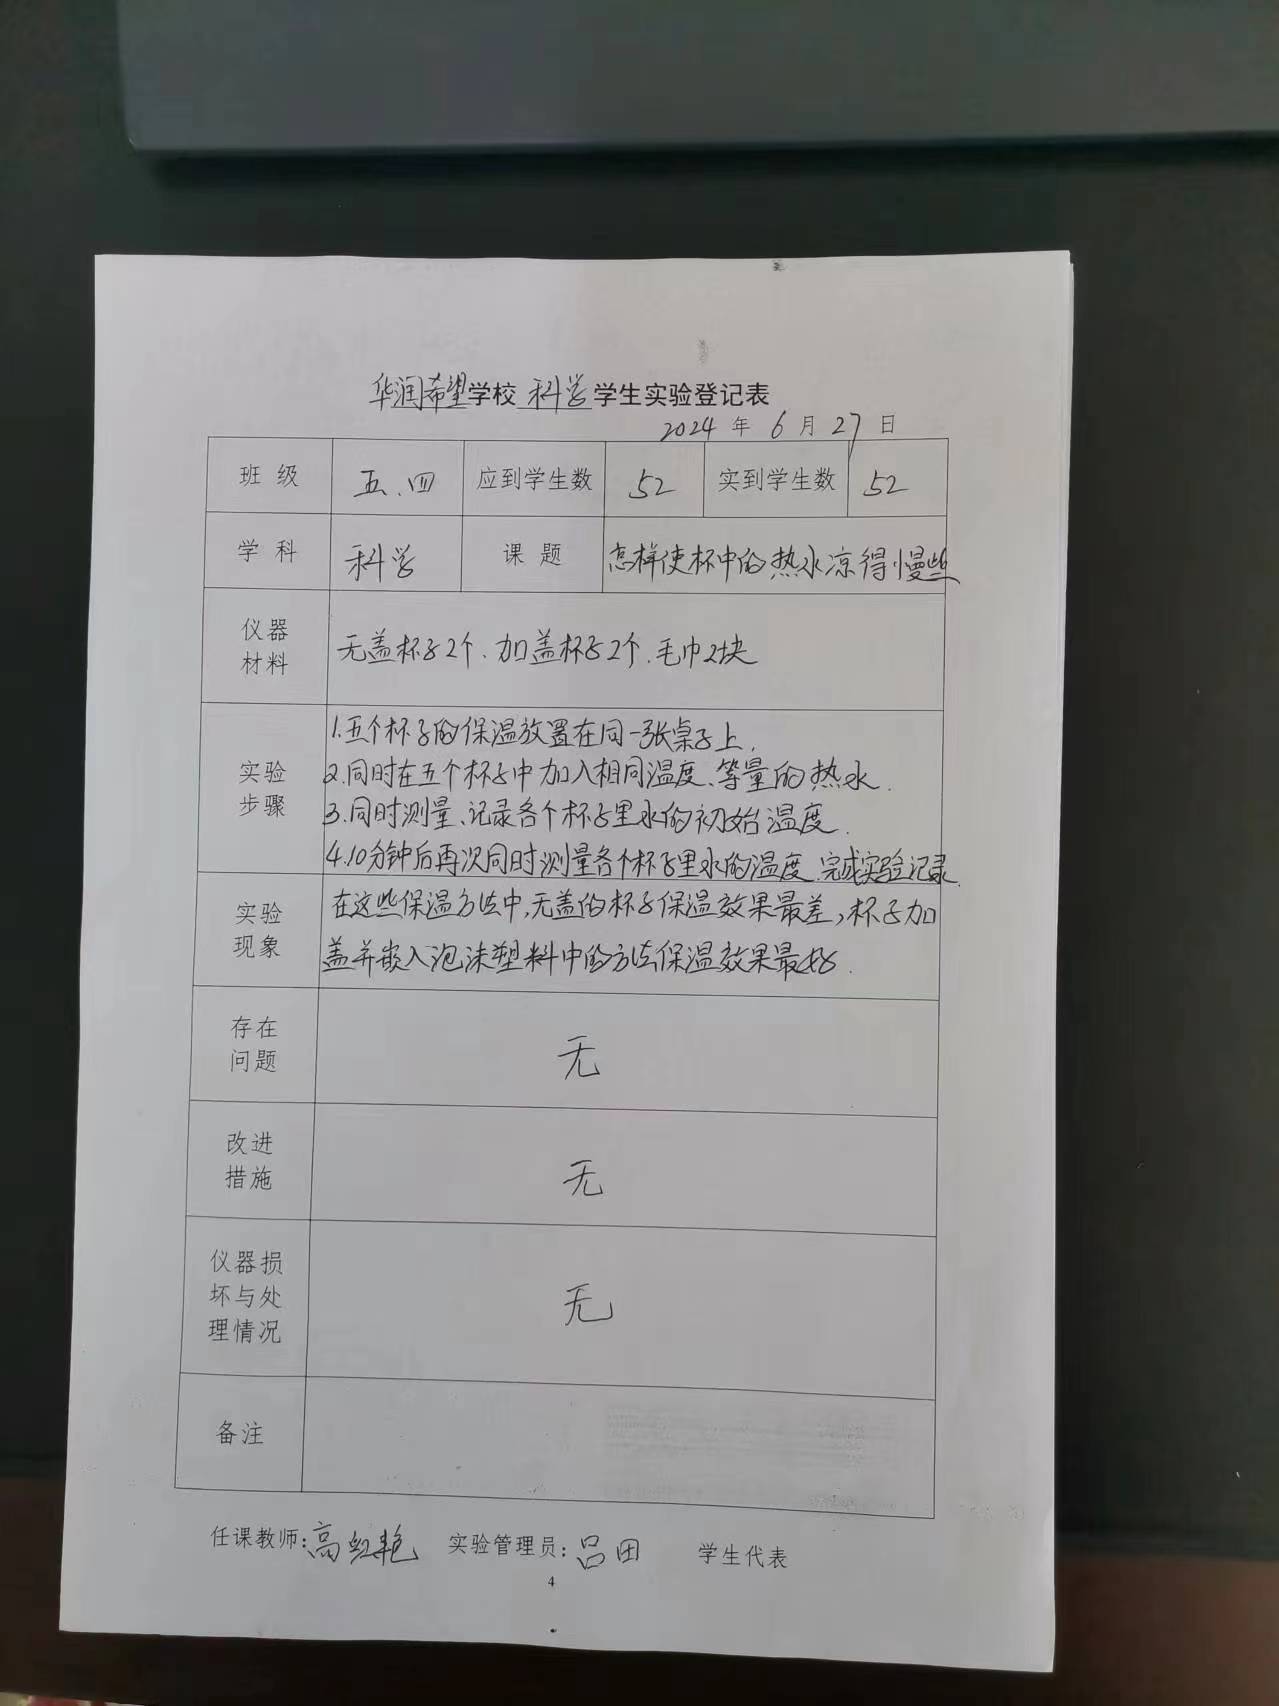 华润希望学校 科学 学生实验登记表
2024 年 6 月 27 日
班 级 五.四 应到学生数 52 实到学生数 52
学 科 科学 课 题 怎样使杯中的热水凉得慢些
仪器
材料
无盖杯子2个、加盖杯子2个、毛巾2块
实验
步骤
1.五个杯子的保温放置在同一张桌子上.
2.同时在五个杯子中加入相同温度、等量的热水.
3.同时测量、记录各个杯子里水的初始温度.
4.10分钟后再次同时测量各个杯子里水的温度.完成实验记录.
实验
现象
在这些保温方法中,无盖的杯子保温效果最差,杯子加
盖并嵌入泡沫塑料中的方法保温效果最好.
存在
问题
无
改进
措施
无
仪器损
坏与处
理情况
无
备注
任课教师:高红艳 实验管理员:吕田 学生代表
4